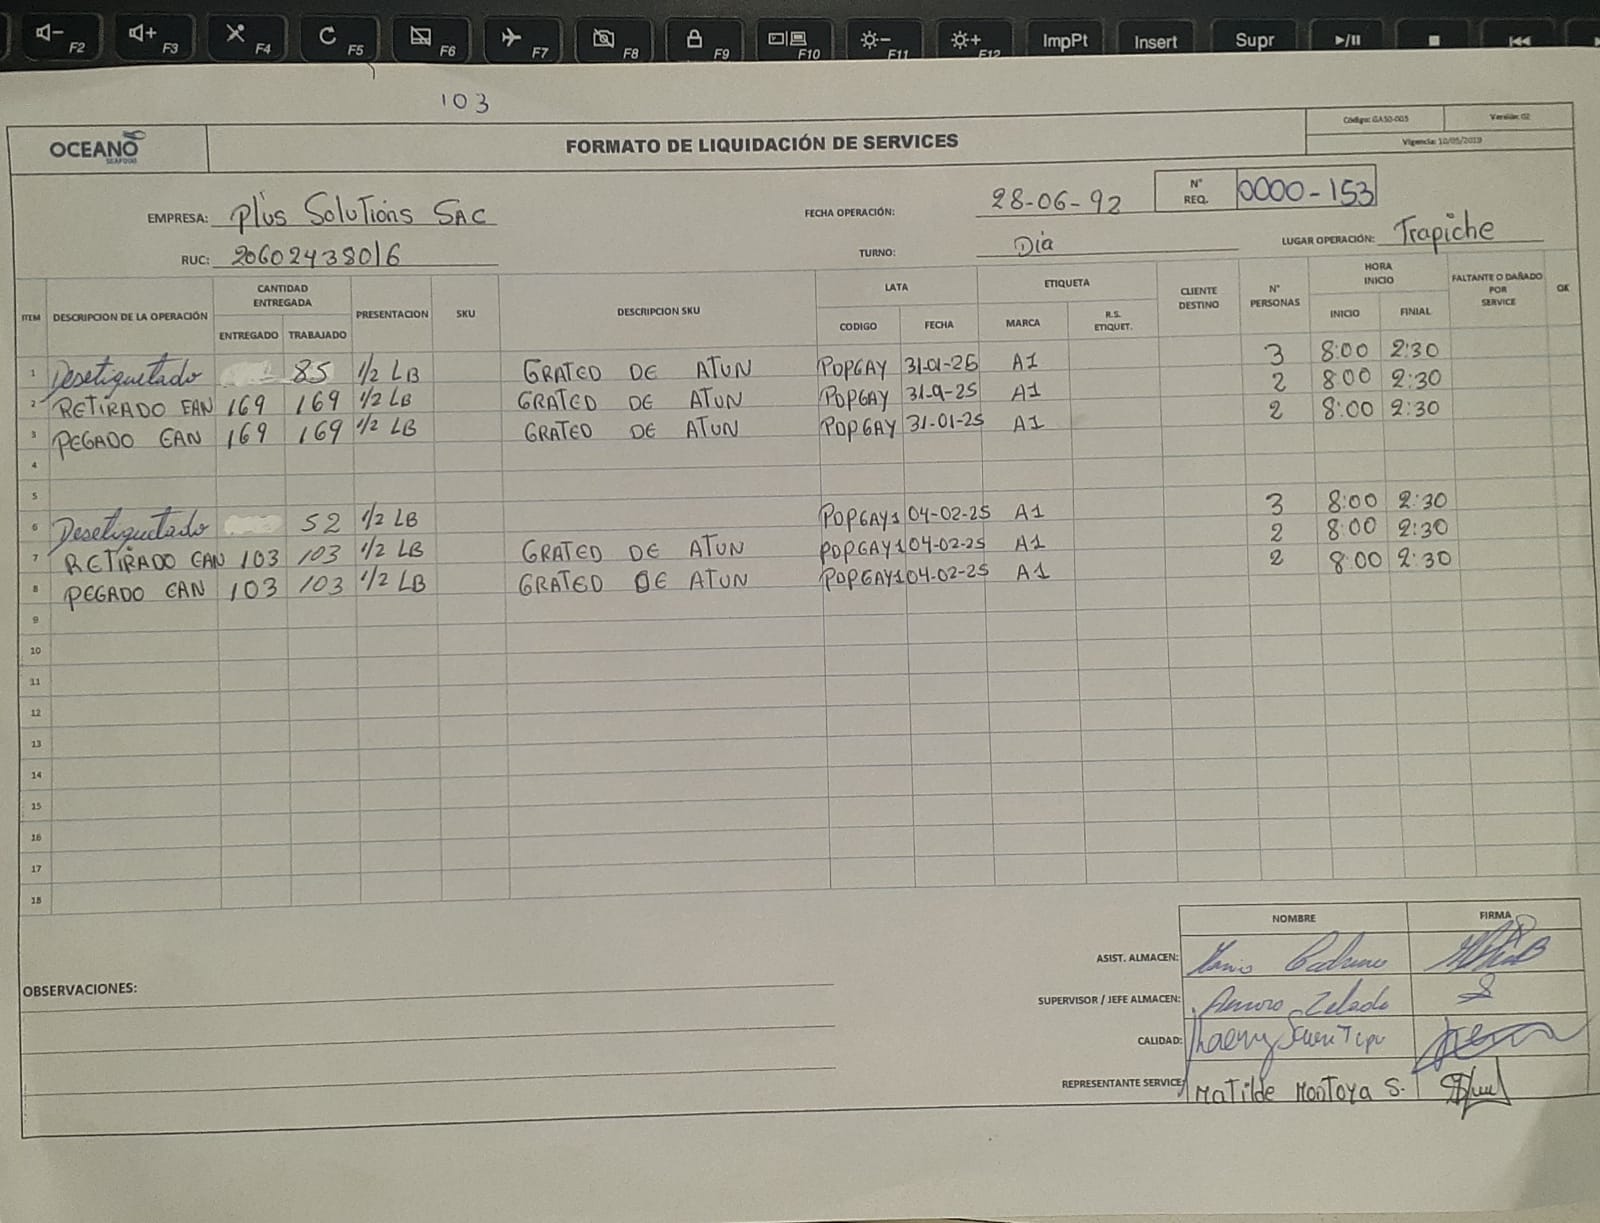 F2 F3 F4 F5 F6 F7 F8 F9 F10 F11 F12 ImpPt Insert Supr
103
OCEANO
SEAFOOD
FORMATO DE LIQUIDACIÓN DE SERVICES
Código: GA50-005
Versión: 02
Vigencia: 10/05/2019
EMPRESA: Plus Solutions SAC
FECHA OPERACIÓN: 28-06-92
N° REQ. 0000-153
RUC: 20602438016
TURNO: Día
LUGAR OPERACIÓN: Trapiche
ITEM DESCRIPCION DE LA OPERACIÓN CANTIDAD ENTREGADA PRESENTACION SKU DESCRIPCION SKU LATA ETIQUETA CLIENTE DESTINO N° PERSONAS HORA INICIO FALTANTE O DAÑADO POR SERVICE OK
ENTREGADO TRABAJADO CODIGO FECHA MARCA R.S. ETIQUET. INICIO FINIAL
1 Desetiquetado 85 1/2 LB GRATED DE ATUN POPGAY 31-01-25 A1 3 8:00 2:30
2 RETIRADO EAN 169 169 1/2 LB GRATED DE ATUN POPGAY 31-9-25 A1 2 8:00 2:30
3 PEGADO EAN 169 169 1/2 LB GRATED DE ATUN POPGAY 31-01-25 A1 2 8:00 2:30
4
5
6 Desetiquetado 52 1/2 LB POPGAY1 04-02-25 A1 3 8:00 2:30
7 RETIRADO EAN 103 103 1/2 LB GRATED DE ATUN POPGAY1 04-02-25 A1 2 8:00 2:30
8 PEGADO EAN 103 103 1/2 LB GRATED DE ATUN POPGAY1 04-02-25 A1 2 8:00 2:30
9
10
11
12
13
14
15
16
17
18
NOMBRE FIRMA
ASIST. ALMACEN:
OBSERVACIONES:
SUPERVISOR / JEFE ALMACEN:
CALIDAD:
REPRESENTANTE SERVICE: Matilde Montoya S.